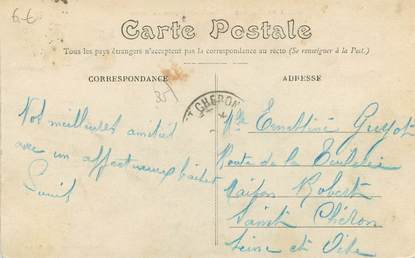 6 €
Carte Postale
Tous les pays étrangers n'acceptent pas la correspondance au recto (Se renseigner à la Post.)
CORRESPONDANCE
ADRESSE
35
ST CHERON
Nos meilleures amitiés
avec un affectueux baiser
Mlle Ernestine Guyot
Route de la
Maison Robert
Saint Chéron
Seine et Oise